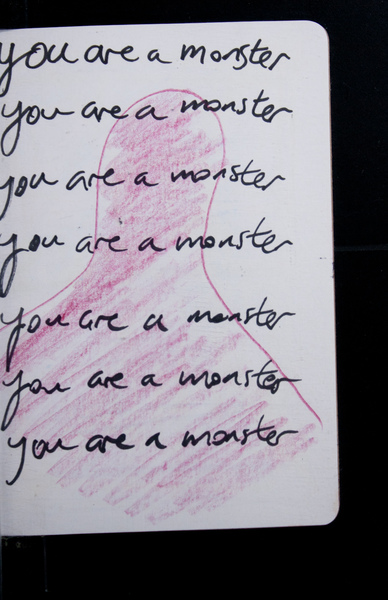 you are a monster
you are a monster
you are a monster
you are a monster
you are a monster
you are a monster
you are a monster